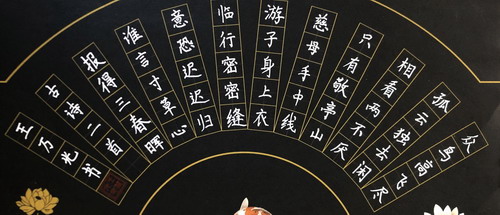 众鸟高飞尽
孤云独去闲
相看两不厌
只有敬亭山
慈母手中线
游子身上衣
临行密密缝
意恐迟迟归
谁言寸草心
报得三春晖
古诗二首
王万光书